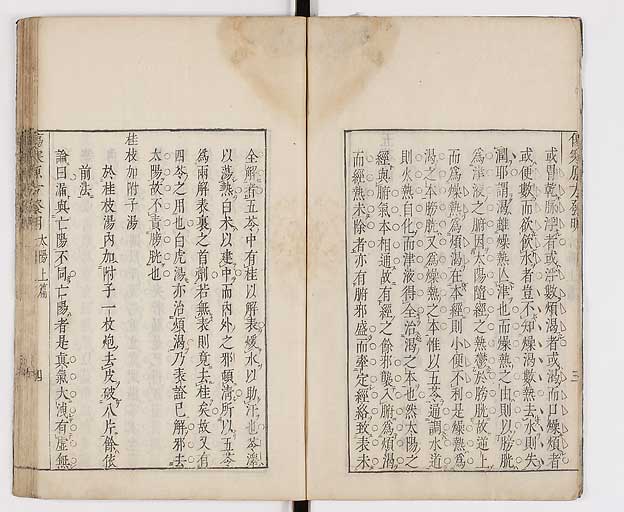 或胃乾脈浮者或浮數煩渴者或渴而口燥煩者
或便數而欲飲水者豈不知燥渴數熱去水則失
潤耶謂渴雖燥熱人津也而燥熱之由則以膀胱
為津液之腑因太陽隨經之熱鬱於膀胱故逆上
而為燥熱為煩渴在本經則小便不利是燥熱為
渴之本膀胱又為燥熱之本惟以五苓通調水道
則火熱自化而津液得全治渴之本也然太陽之
經與腑氣本相通故有經之餘邪襲入腑為煩渴
而經熱未除者亦有腑邪盛而牽定經絡致表未
全解者五苓中有桂以解表煖水以助汗也苓澤
以蕩熱白朮以建中而內外之邪頓清所以五苓
為兩解表裏之首劑若無表則竟去桂矣故又有
四苓之用也白虎湯亦治煩渴乃表證已解邪去
太陽故不責膀胱也
桂枝加附子湯
於桂枝湯內加附子一枚炮去皮破八片餘依
前法
論曰漏與亡陽不同亡陽者是真氣大洩有虛無
太陽上篇
四
三